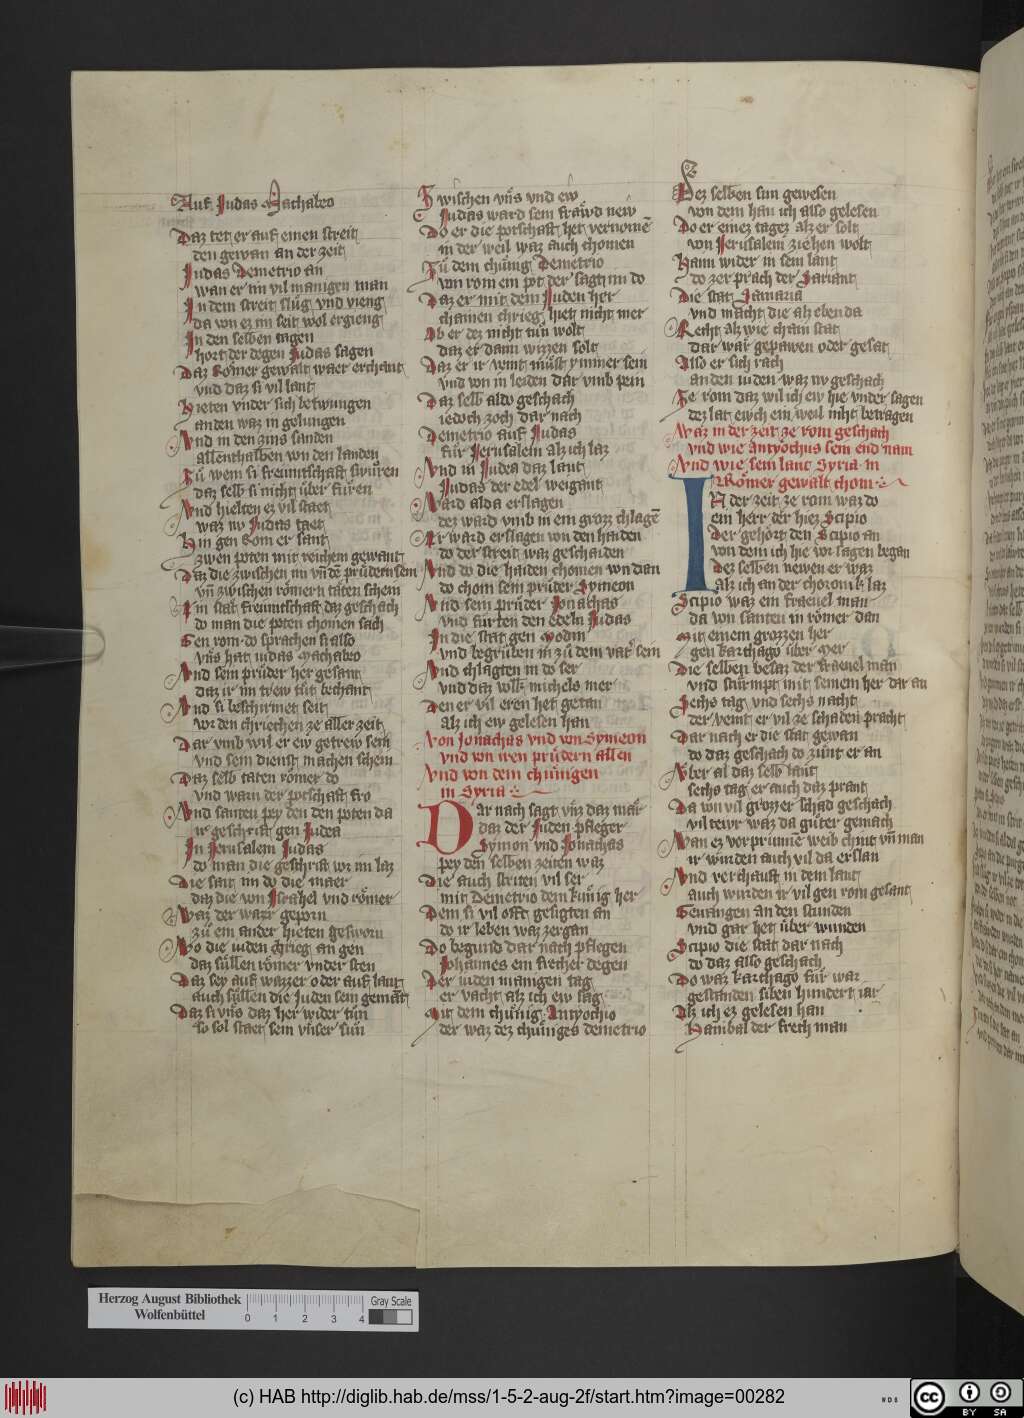 Auf Judas Machabeo
Daz tet er auf einen streit
den gewan an der zeit
Judas Demetrio an
wan er im vil manigen man
In dem streit slůg vnd vieng
da von ez im seit wol ergieng
In den selben tagen
hort der degen Judas sagen
Daz Römer gewalt waer erchant
vnd daz si vil lant
Hieten vnder sich betwungen
an den waz in gelungen
Vnd in den zins sanden
allenthalben von den landen
Zů wem si freuntschaft swůren
daz selb si nicht über fůren
Vnd hielten ez vil staet
waz nv Judas taet
Hin gen Rom er sant
zwen poten mit reichem gewant
Daz die zwischen im vn̄ de prüdern sein
vn̄ zwischen römern taten schein
Ein staet freuntschaft daz geschach
do man die poten chomen sach
Gen rom do sprachen si also
vns hat iudas Machabeo
Vnd sein prüder her gesant
daz ir im trew tůt bechant
Vnd si beschirmet seit
vor den chriechen ze aller zeit
Dar vmb wil er ew getrew sein
vnd sein dienst machen schein
Daz selb taten römer do
vnd warn der potschaft fro
Vnd santen pey den den poten da
ir geschrift gen Judea
In Jerusalem Judas
do man die geschrift vor im laz
Die sait im do die maer
daz die von Israhel vnd römer
Waz der waer geporn
zů ein ander hieten gesworn
Wo die iuden chrieg an gen
daz süllen römer vnder sten
Daz sey auf wazzer oder auf lant
auch süllen die Juden sein gemāt
Daz si vns daz her wider tůn
so sol staet sein vnser sůn
Zwischen vns vnd ew
Judas ward sein fräwd new
Do er die potschaft het vernomē
in der weil waz auch chomen
Zů dem chünig Demetrio
von rom ein pot der sagt im do
Daz er mit dem Juden her
chainen chrieg hiet nicht mer
Ob er dez nicht tůn wolt
daz er dann wizzen solt
Daz er ir veint můst ymmer sein
vnd von in leiden dar vmb pein
Daz selb aldo geschach
iedoch zoch dar nach
Demetrio auf Judas
für Jerusalem alz ich laz
Vnd in Judea daz lant
Judas der edel weigant
Ward alda erslagen
dez ward vmb in ein grozz chlagē
Er ward erslagen von den haiden
do der streit waz geschaiden
Vnd do die haiden chomen von dan
do chom sein prüder Symeon
Vnd sein prüder Jonachas
vnd fůrten den edeln Judas
In die stat gen Modin
vnd begrůben in zů dem vatr̄ sein
Vnd chlagten in do ser
vnd daz volk michels mer
Den er vil eren het getan
alz ich ew gelesen han
Von Jonachas vnd von Symeon
vnd von iren prüdern allen
Vnd von dem chünigen
in Syria
Dar nach sagt vns daz mär
daz der Juden pfleger
Symon vnd Jonachas
pey den selben zeiten waz
Die auch striten vil ser
mit Demetrio dem künig her
Dem si vil offt gesigten an
do ir leben waz zergan
Do begund dar nach pflegen
Johannes ein frecher degen
Der iuden manigen tag
er vacht alz ich ew sag
Mit dem chünig Antyochio
der waz dez chüniges demetrio
Dez selben sun gewesen
von dem han ich also gelesen
Do er einez tagez alz er solt
von Jerusalem ziehen wolt
Haim wider in sein lant
do zer prach der Sariant
Die stat Samaria
vnd macht die alz eben da
Recht alz wie chain stat
dar war gepawen oder gesat
Also er sich rach
an den iuden waz nv geschach
Ze rom daz wil ich ew hie vnder sagen
dez lat ewch ein weil niht betragen
Waz in der zeit ze rom geschach
vnd wie antyochus sein end nam
Vnd wie sein lant Syria in
Römer gewalt chom
In der zeit ze rom waz do
ein herr der hiez Scipio
Der gehört den Scipio an
von dem ich hie vor sagen began
Dez selben neuen er waz
alz ich an der choronik laz
Scipio waz ein fraeuel man
da von santen in römer dan
Mit einem grozzen her
gen kartchago über Mer
Die selben besaz der fraeuel man
vnd stürmpt mit seinem her dar an
Sechs tag vnd sechs nacht
der veint er vil ze schaden pracht
Dar nach er die stat gewan
do daz geschach do zunt er an
Vber al daz selb lant
sechs tag er auch daz prant
Da von vil grozzer schad geschach
vil tewr waz da gůter gemach
Man ez verprunnē weib chint vn̄ man
ir wurden auch vil da erslan
Vnd verchauft in dem lant
auch wurden ir vil gen rom gesant
Geuangen an den stunden
vnd gar het über wunden
Scipio die stat dar nach
do daz also geschach
Do waz kartchago für war
gestanden siben hundert iar
Alz ich ez gelesen han
Hanibal der frech man
Herzog August Bibliothek
Wolfenbüttel
0 1 2 3 4
Gray Scale
(c) HAB http://diglib.hab.de/mss/1-5-2-aug-2f/start.htm?image=00282
WDB
cc BY SA